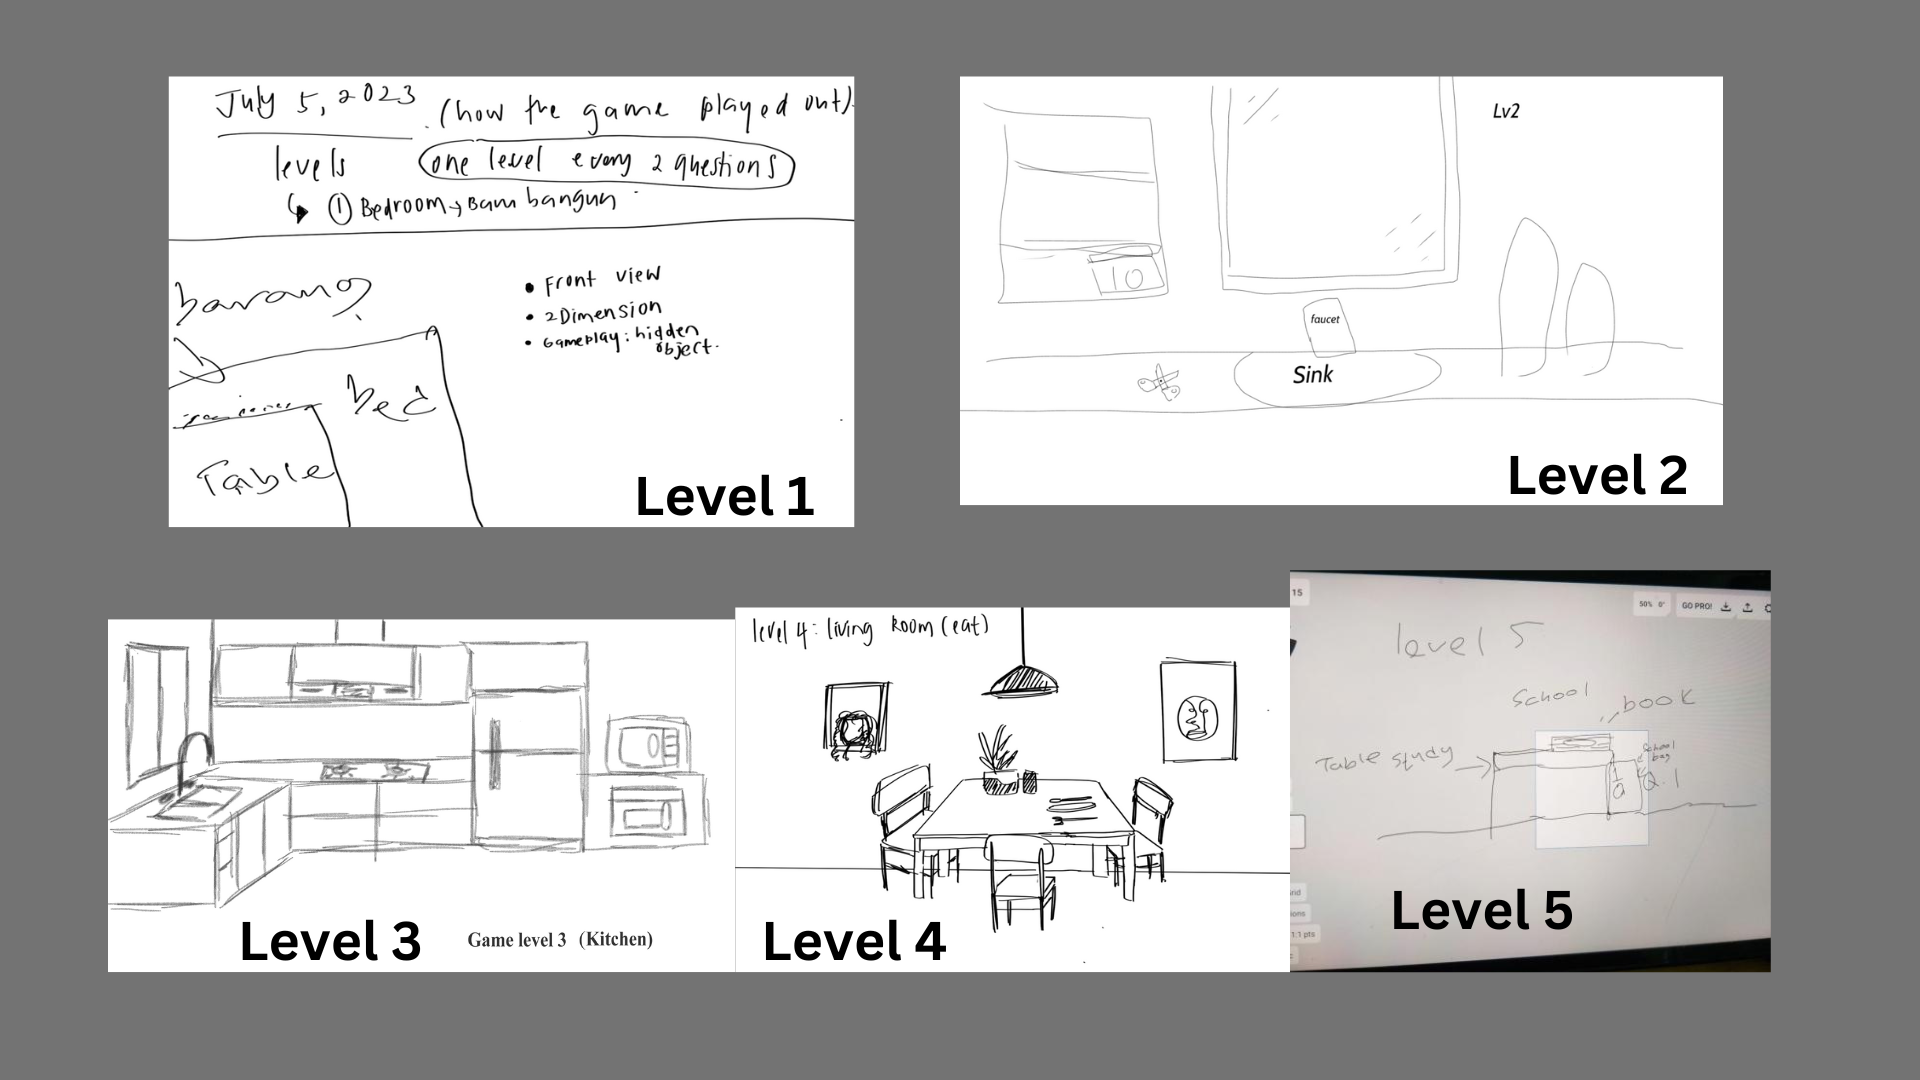 July 5, 2023 (how the game played out).
levels one level every 2 questions
↳ ① Bedroom → Baru bangun
barang
• Front view
• 2Dimension
• Gameplay: hidden
object.
bed
Table
Level 1
Lv2
10
faucet
Sink
Level 2
Level 3
Game level 3 (Kitchen)
level 4: living Room (eat)
Level 4
15
50% 0°
GO PRO!
level 5
School
book
Table study
School
bag
Q.1
1:1 pts
Level 5